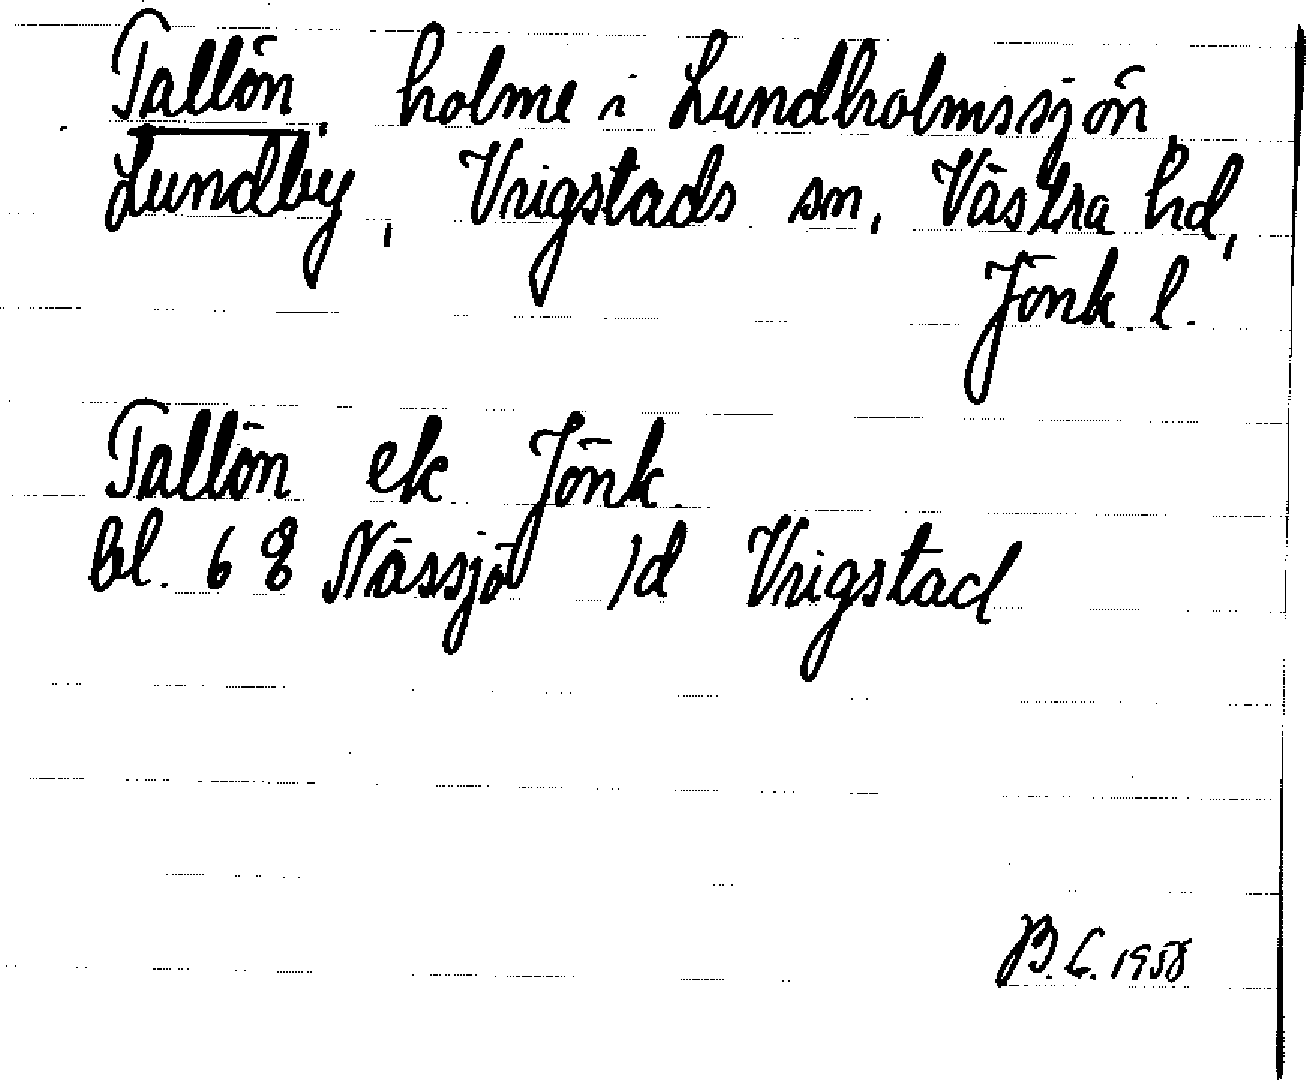 Tallön, holme i Lundholmssjön,
Lundby, Vrigstads sn, Västra hd,
Jönk. l.
Tallön ek Jönk.
bl. 68 Nässjö /d Vrigstad
B.L. 1958